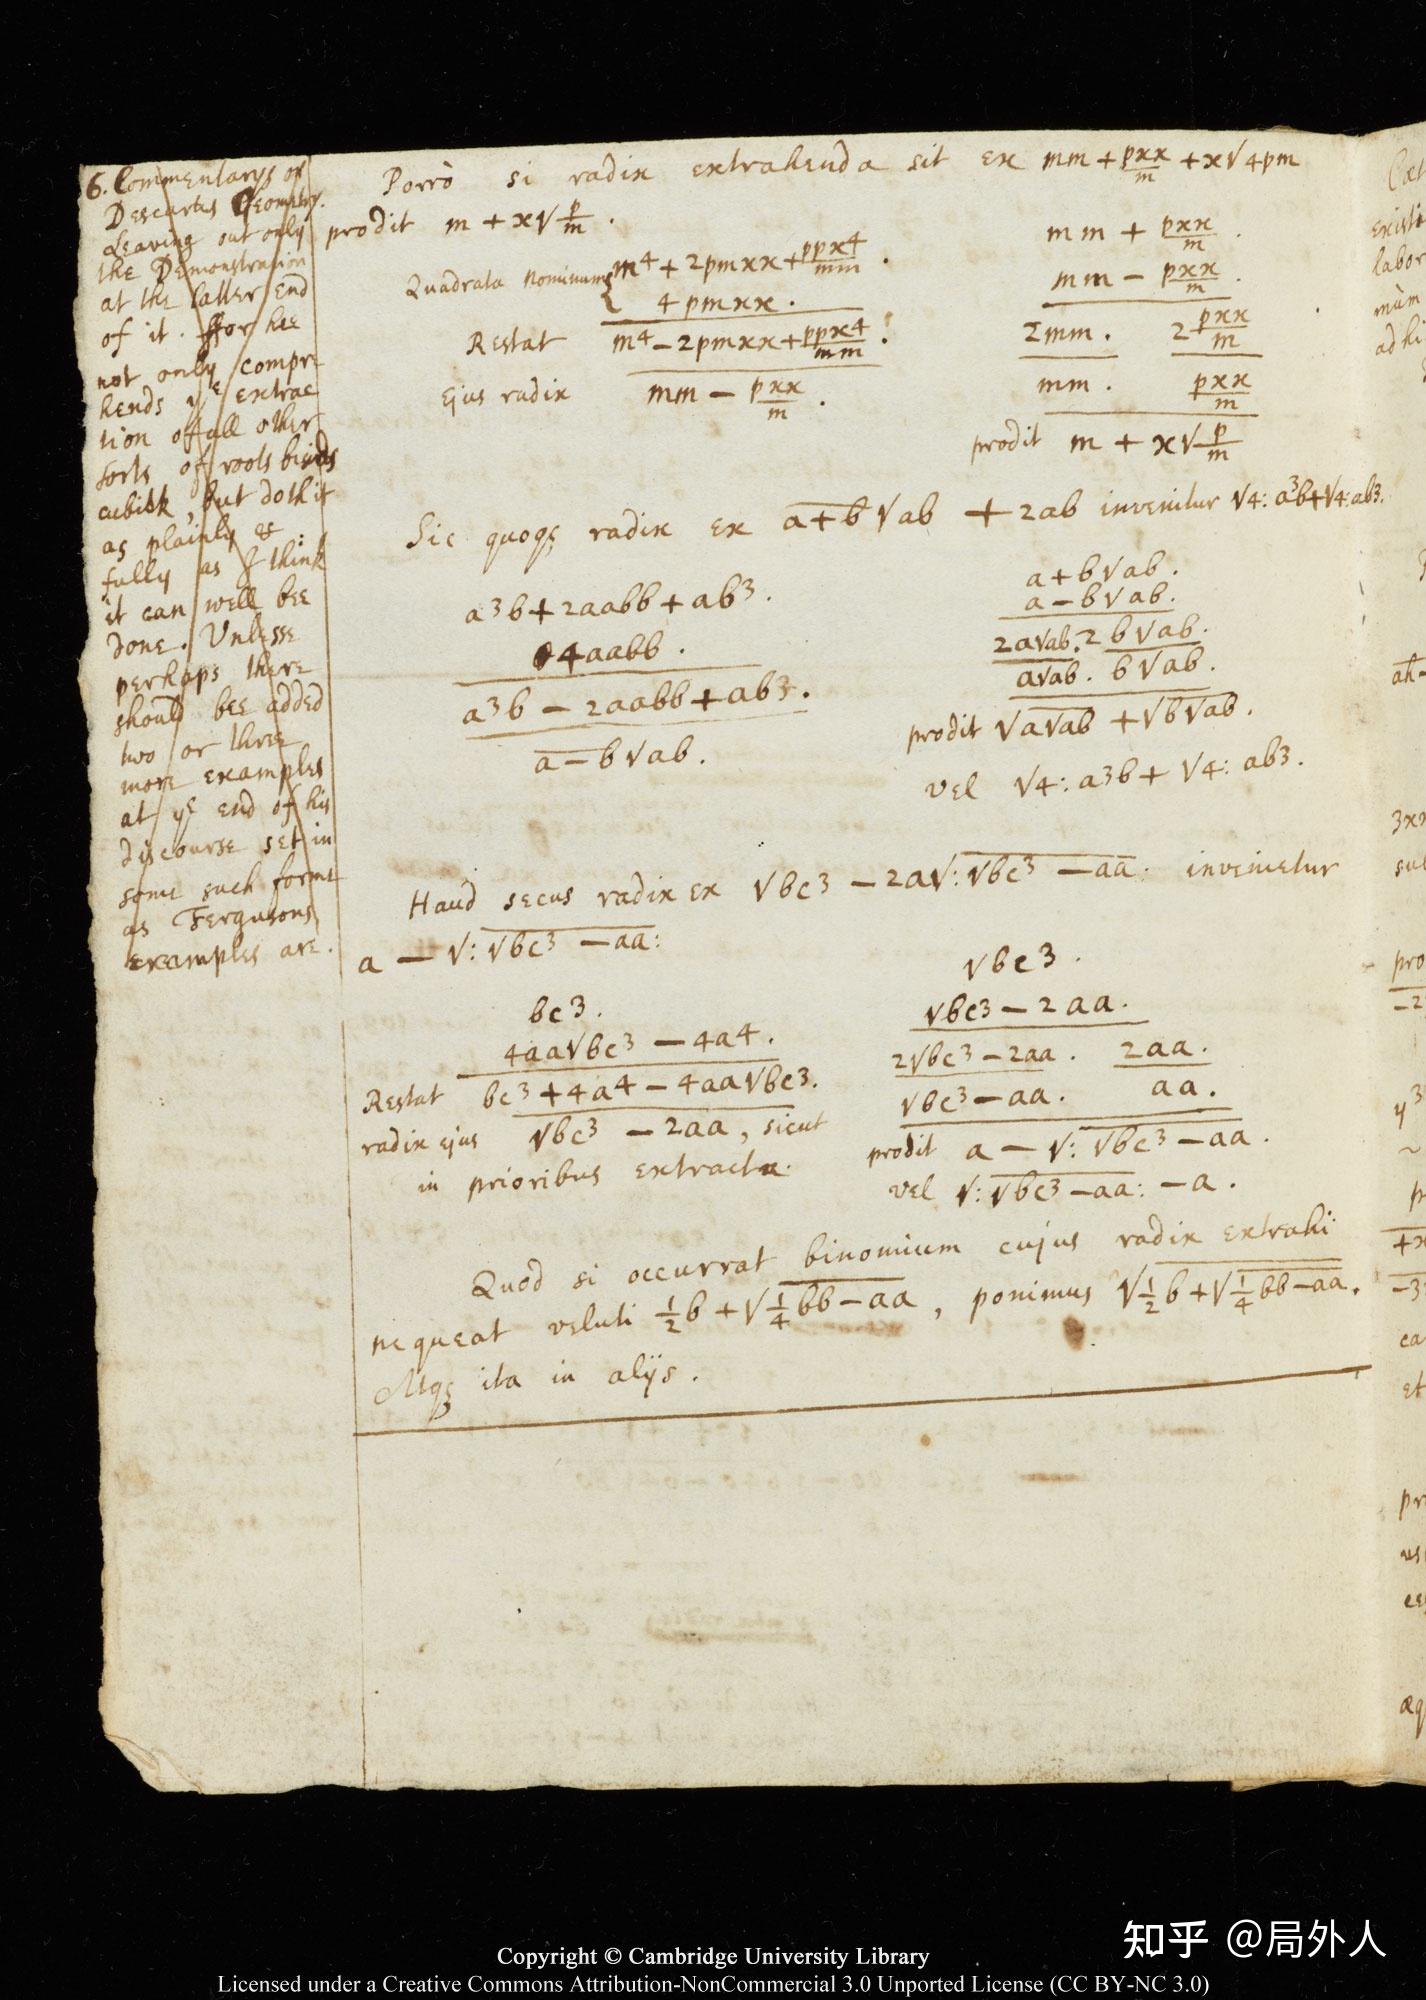 6. Commentarys on
Descartes Geometry.
Leaving out only
the Demonstration
at the latter End
of it. ffor hee
not only compre
hends yᵉ extrac
tion of all other
sorts of roots
cubick, but doth it
as plainly &
fully as I think
it can well bee
done. Unlesse
perhaps there
should bee added
two or three
more examples
at yᵉ end of his
discourse set in
some such forme
as Fergusons
examples are.
Porrò si radix extrahenda sit ex mm + pxx/m + x√4pm
prodit m + x√p/m.
Quadrata Nominum { m⁴ + 2pmxx + ppx⁴/mm.
4pmxx.
Restat m⁴ − 2pmxx + ppx⁴/mm.
Ejus radix mm − pxx/m.
mm + pxx/m.
mm − pxx/m.
2mm. 2pxx/m
mm. pxx/m
prodit m + x√p/m
Sic quoqȝ radix ex a+b√ab + 2ab invenitur √4: a³b + √4: ab3.
a³b + 2aabb + ab³.
4aabb.
a³b − 2aabb + ab³.
a − b√ab.
a + b√ab.
a − b√ab.
2a√ab. 2b√ab.
a√ab. b√ab.
prodit √a√ab + √b√ab.
vel √4: a3b + √4: ab3.
Haud secus radix ex √bc³ − 2a√:√bc³ − aa: invenietur
a − √:√bc³ − aa:
bc³.
4aa√bc³ − 4a4.
Restat bc³ + 4a⁴ − 4aa√bc3.
radix ejus √bc³ − 2aa, sicut
in prioribus extracta.
√bc3.
√bc3 − 2aa.
2√bc³ − 2aa. 2aa.
√bc³ − aa. aa.
prodit a − √:√bc³ − aa.
vel √:√bc³ − aa: − a.
Quod si occurrat binomium cujus radix extrahi
nequeat veluti ½b + √¼bb − aa, ponimus √½b + √¼bb − aa.
Atqȝ ita in alijs.
existi
labor
ad hi
3xx
pro
−2
y3
+x
−3
ca
et
pr
æq
知乎 @局外人
Copyright © Cambridge University Library
Licensed under a Creative Commons Attribution-NonCommercial 3.0 Unported License (CC BY-NC 3.0)